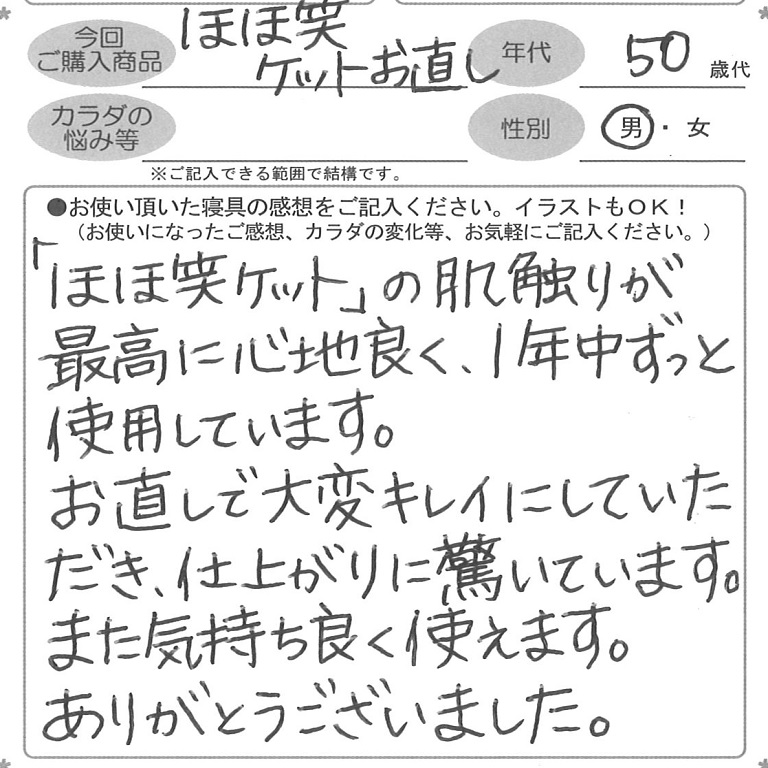 今回
ご購入商品
ほほ笑
ケットお直し
年代
50
歳代
カラダの
悩み等
性別
男・女
※ご記入できる範囲で結構です。
●お使い頂いた寝具の感想をご記入ください。イラストもOK！
（お使いになったご感想、カラダの変化等、お気軽にご記入ください。）
「ほほ笑ケット」の肌触りが
最高に心地良く、1年中ずっと
使用しています。
お直しで大変キレイにしていた
だき、仕上がりに驚いています。
また気持ち良く使えます。
ありがとうございました。